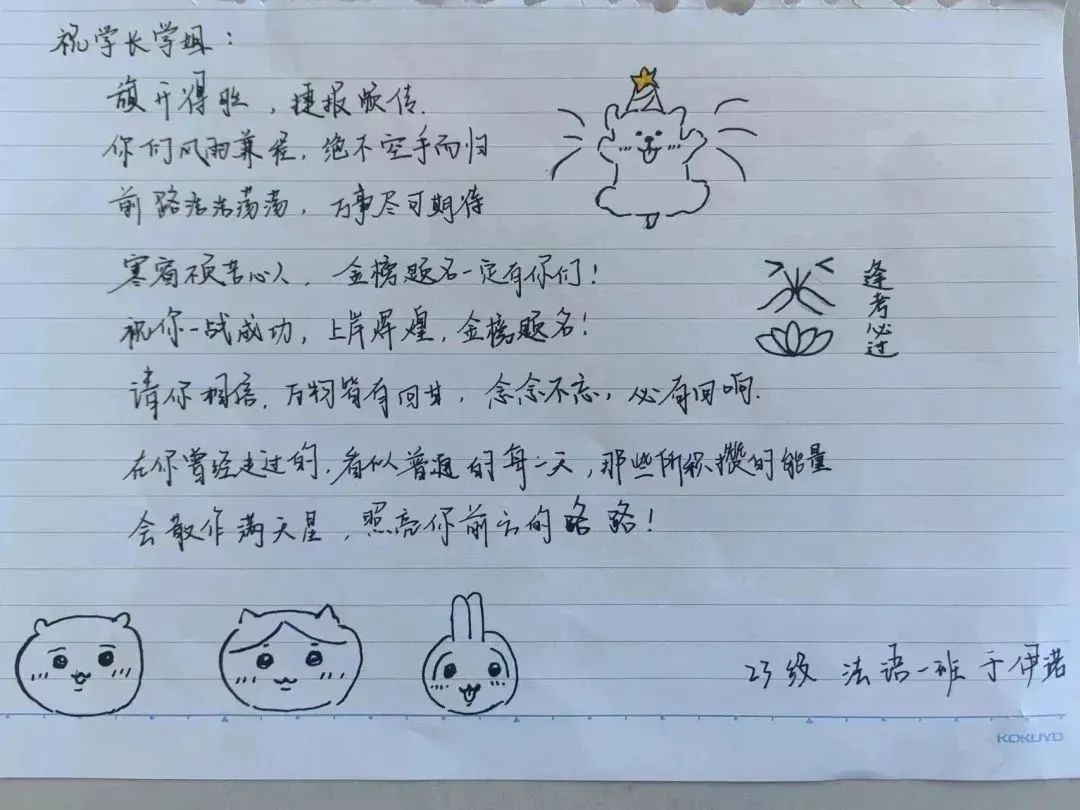 祝学长学姐：
旗开得胜，捷报频传.
你们风雨兼程，绝不空手而归
前路浩浩荡荡，万事尽可期待
寒窗不负苦心人，金榜题名一定有你们！
祝你一战成功，上岸辉煌，金榜题名！
逢考必过
请你相信，万物皆有回甘，念念不忘，必有回响.
在你曾经走过的，看似普通的每一天，那些所积攒的能量
会散作满天星，照亮你前方的路！
23级 法语一班 于伊诺
KOKUYO